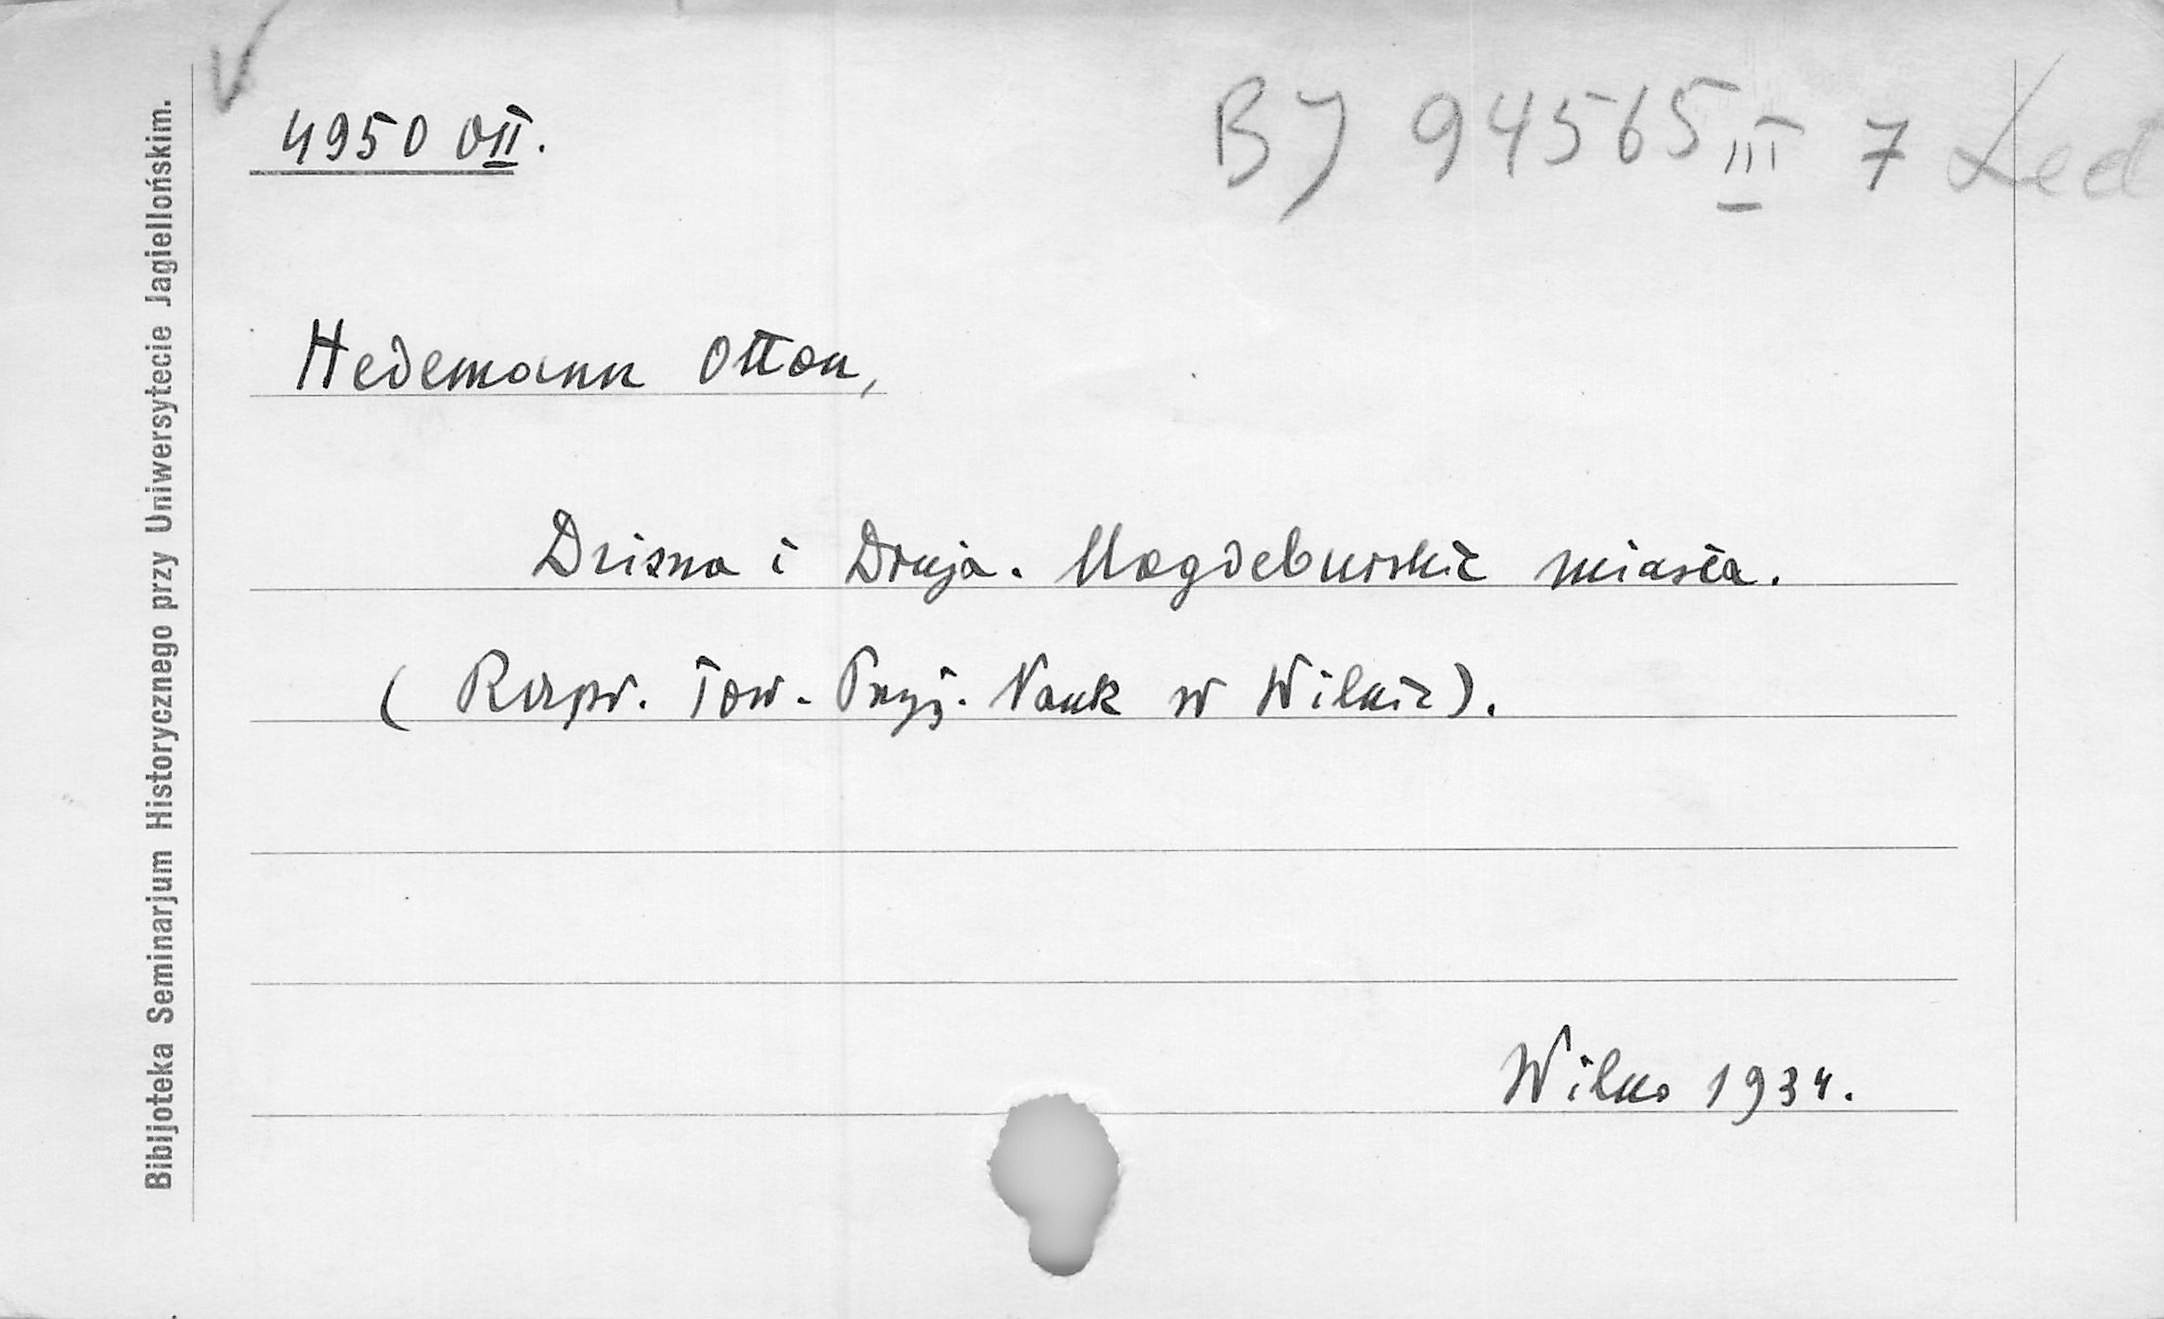 4950 OII.
BJ 94565 III 7 Led
Hedemann Otton,
Dzisna i Druja. Magdeburskie miasta.
(Rozpr. Tow. Przyj. Nauk w Wilnie).
Wilno 1934.
Bibljoteka Seminarjum Historycznego przy Uniwersytecie Jagiellońskim.